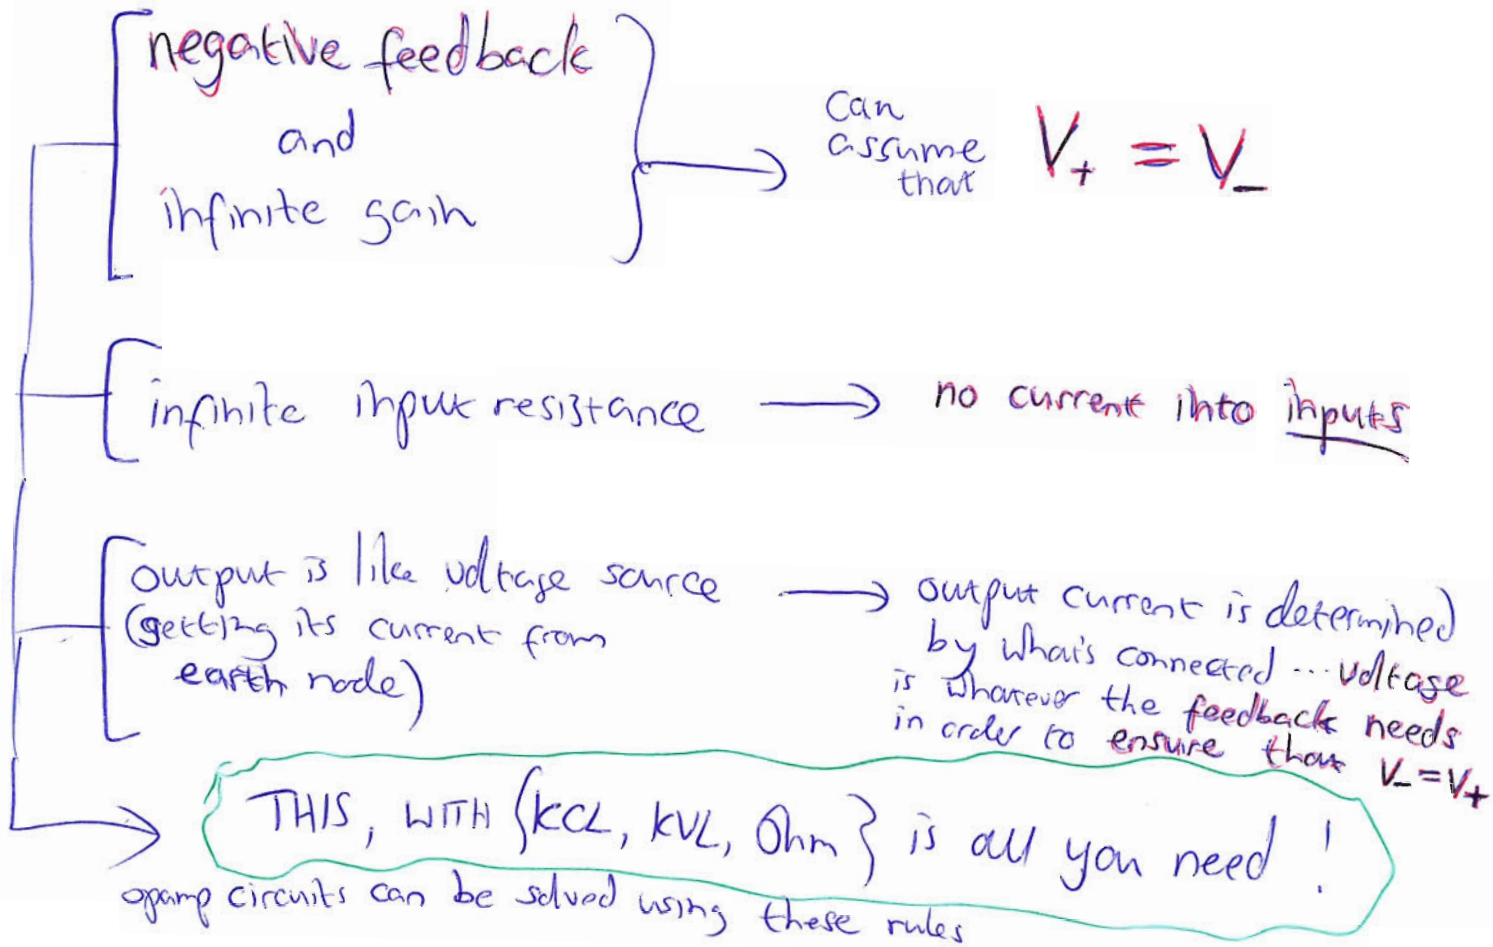 negative feedback
and
infinite gain
can
assume
that
V₊ = V₋
infinite input resistance
no current into inputs
output is like voltage source
(getting its current from
earth node)
output current is determined
by what's connected ... voltage
is whatever the feedback needs
in order to ensure that V₋ = V₊
THIS, WITH {KCL, KVL, Ohm} is all you need !
opamp circuits can be solved using these rules